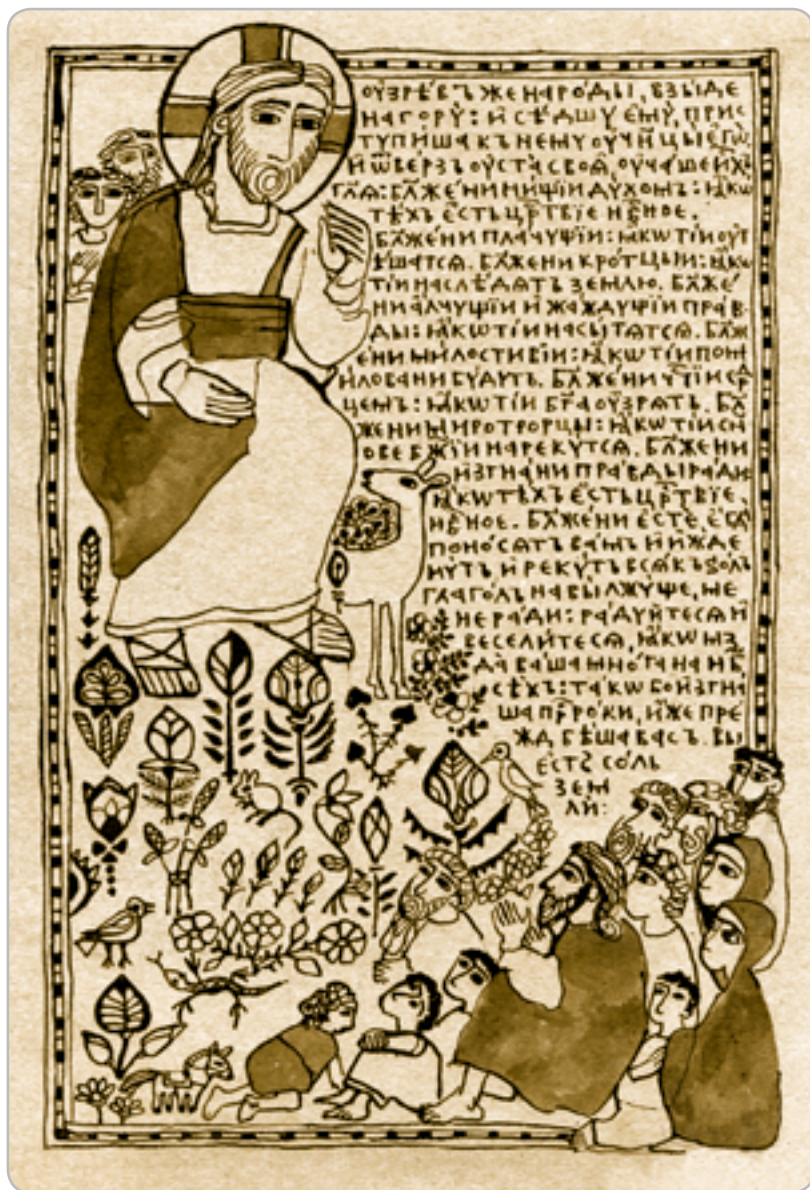 ОУ҆ЗРѢ́ВЪ ЖЕ НАРО́ДЫ, ВЗЫ́ДЕ
НА ГОРꙊ̀: И҆ СѢ́ДШꙊ Є҆МꙊ̀, ПРИС
ТꙊПИ́ША КЪ НЕМꙊ̀ ОУ҆ЧН҃ЦЫ̀ Є҆ГѠ̀.
И҆ Ѿ́ВЕРЗЪ ОУ҆СТА̀ СВОѦ̑, ОУ҆ЧА́ШЕ И҆̀ХЪ
ГЛ҃Ѧ: БЛ҃ЖЕ́НИ НИ́ЩЇИ ДꙊ́ХОМЪ: Ꙗ҆́КѠ
ТѢ́ХЪ Є҆́СТЬ ЦРⷭ҇ТВЇЕ НБⷭ҇НОЕ.
БЛ҃ЖЕ́НИ ПЛА́ЧꙊЩЇИ: Ꙗ҆́КѠ ТІ́И ОУ҆Т
Ѣ́ШАТСѦ. БЛ҃ЖЕ́НИ КРО́ТЦЫИ: Ꙗ҆́КѠ
ТІ́И НАСЛѢ́ДѦТЪ ЗЕ́МЛЮ. БЛ҃ЖЕ́
НИ А҆́ЛЧꙊЩЇИ И҆ ЖА́ЖДꙊЩЇИ ПРА́В
ДЫ: Ꙗ҆́КѠ ТІ́И НАСЫ́ТѦТСѦ. БЛ҃Ж
Е́НИ МИ́ЛОСТИВЇИ: Ꙗ҆́КѠ ТІ́И ПОМ
И́ЛОВАНИ БꙊ́ДꙊТЪ. БЛ҃ЖЕ́НИ Чⷭ҇ТІИ СРⷣ
ЦЕМЪ: Ꙗ҆́КѠ ТІ́И БГ҃А ОУ҆́ЗРѦТЪ. БЛ҃
ЖЕ́НИ МИРОТВО́РЦЫ: Ꙗ҆́КѠ ТІ́И СН҃
ОВЕ БЖ҃ЇИ НАРЕКꙊ́ТСѦ. БЛ҃ЖЕ́НИ
И҆ЗГНА́НИ ПРА́ВДЫ РА́ДИ
Ꙗ҆́КѠ ТѢ́ХЪ Є҆́СТЬ ЦРⷭ҇ТВЇЕ
НБⷭ҇НОЕ. БЛ҃ЖЕ́НИ Є҆СТЀ, Є҆ГДА̀
ПОНО́СѦТЪ ВА́МЪ И҆ И҆ЖДЕ
НꙊ́ТЪ И҆ РЕКꙊ́ТЪ ВСѦ́КЪ ЅО́ЛЪ
ГЛАГО́ЛЪ НА ВЫ̀ ЛЖꙊ́ЩЕ, МЕ
НЀ РА́ДИ: РА́ДꙊЙТЕСѦ И҆
ВЕСЕЛИ́ТЕСѦ, Ꙗ҆́КѠ МЗ
ДА̀ ВА́ША МНО́ГА НА НБ҃
СѢ́ХЪ: ТА́КѠ БО И҆ЗГНА
ША ПРⷪ҇РО́КИ, И҆̀ЖЕ ПРЕ́
ЖДЕ БѢ́ША ВА́СЪ. ВЫ̀
Є҆СТЀ СО́ЛЬ
ЗЕМ
ЛЍ: